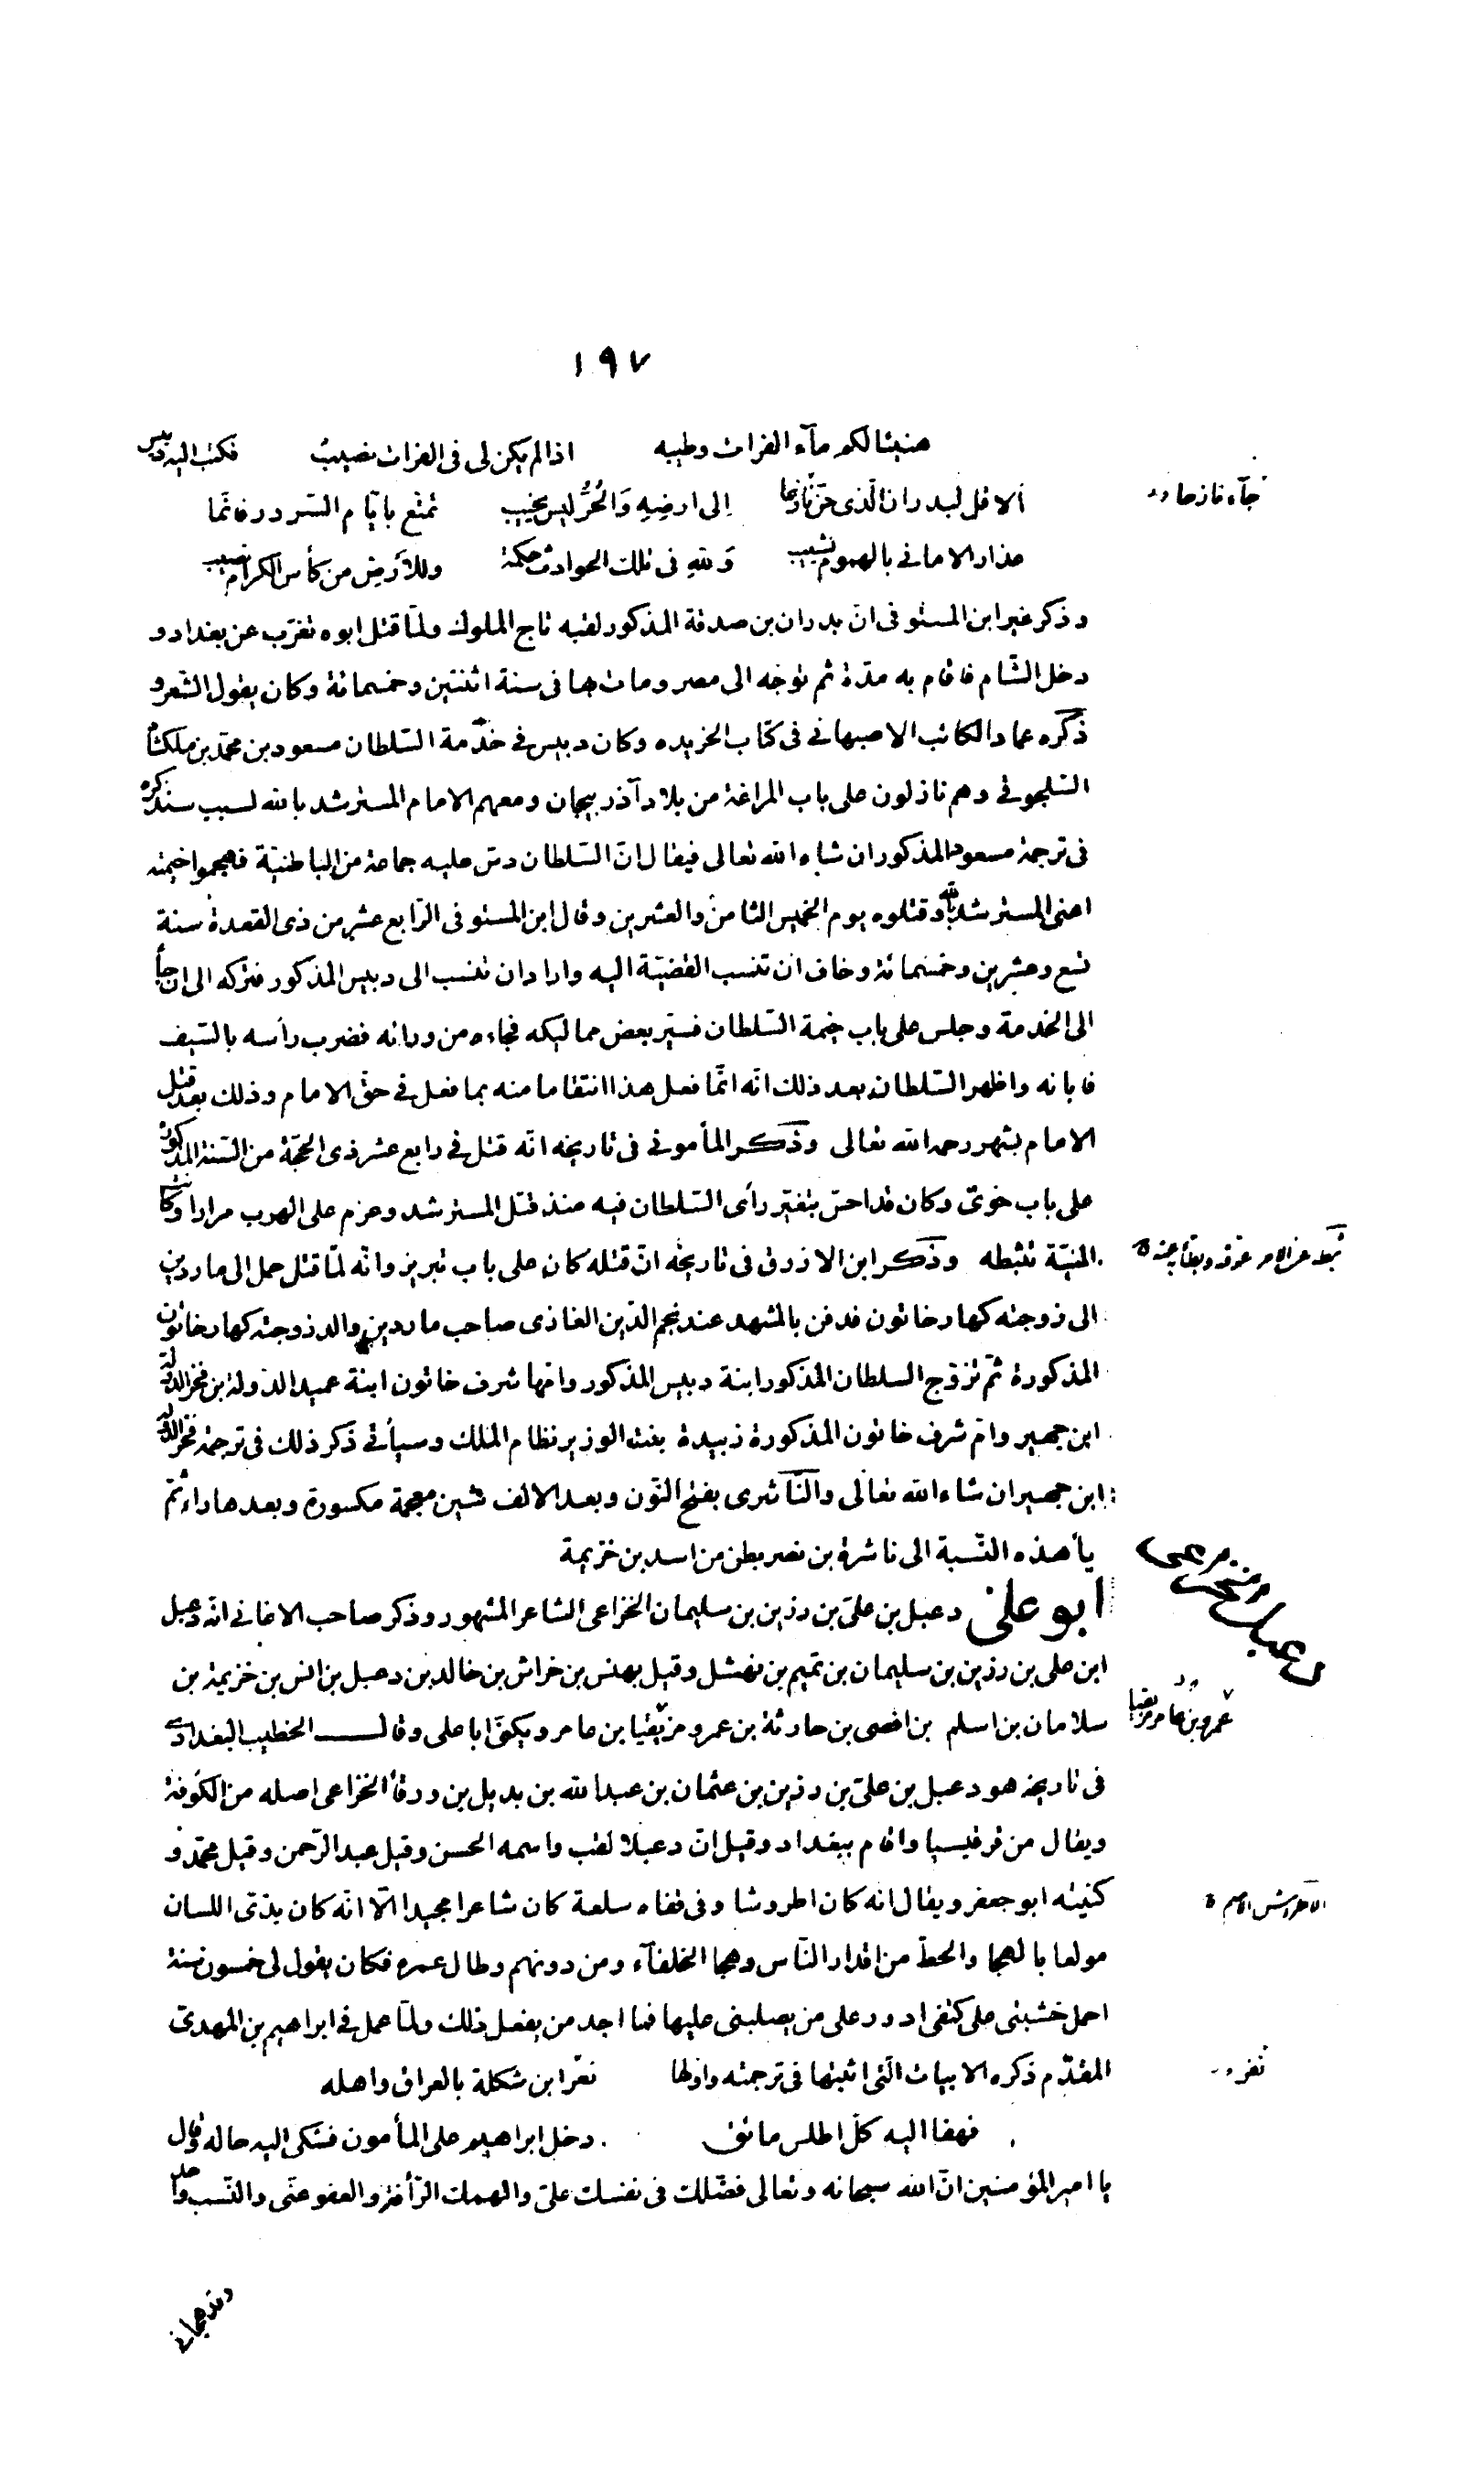 ١٩٧
هنيئا لكم مآء الفرات وطيبه اذا لم يكن لى فى الفرات نصيب فكتب اليه دبيس
ألا قل لبدران الّذى حنّ نازعا إلى ارضِهِ وَالحُرُّ ليس يخيب تمتّع بايّام السّرور فانّما
عذار الامانى بالهموم يشيب وَللهِ فى تلك الحوادث حكمة وللأرض من كأس الكرام نصيب
وذكر غير ابن المستوفى انّ بدران بن صدقة المذكور لقبه تاج الملوك ولمّا قتل ابوه تغرّب عن بغداد و
دخل الشّام فاقام به مدّة ثم توجّه الى مصر ومات بها فى سنة اثنتين وخمسمائة وكان يقول الشّعر و
ذكره عماد الكاتب الاصبهانى فى كتاب الخريده وكان دبيس فى خدمة السّلطان مسعود بن محمّد بن ملكشاه
السّلجوقى وهم نازلون على باب المراغة من بلاد آذربيجان ومعهم الامام المسترشد بالله لسبب سنذكره
فى ترجمة مسعود المذكور ان شاء الله تعالى فيقال انّ السّلطان دسّ عليه جماعة من الباطنيّة فهجموا خيمته
اعنى المسترشد بالله وقتلوه يوم الخميس الثامن والعشرين وقال ابن المستوفى الرّابع عشر من ذى القعدة سنة
تسع وعشرين وخمسمائة وخاف ان تنسب القضيّة اليه واراد ان تنسب الى دبيس المذكور فتركه الى ان جآء
الى الخدمة وجلس على باب خيمة السّلطان فسيّر بعض مماليكه فجاءه من ورائه فضرب رأسه بالسّيف
فابانه واظهر السّلطان بعد ذلك انّه انّما فعل هذا انتقاما منه بما فعل فى حقّ الامام وذلك بعد قتل
الامام بشهر رحمه الله تعالى وذكر المأمونى فى تاريخه انّه قتل فى رابع عشر ذى الحجّة من السّنة المذكورة
على باب خوىّ وكان قد احسّ بتغيّر رأى السّلطان فيه منذ قتل المسترشد وعزم على الهرب مرارا وكانت
المنيّة تثبطه وذكر ابن الازرق فى تاريخه انّ قتله كان على باب تبريز وانّه لمّا قتل حمل الى ماردين
الى زوجته كهار خاتون فدفن بالمشهد عند نجم الدّين الغازى صاحب ماردين والد زوجته كهار خاتون
المذكورة ثمّ تزوّج السلطان المذكور ابنة دبيس المذكور وامّها شرف خاتون ابنة عميد الدّولة بن فخر الدّولة
ابن جهير وامّ شرف خاتون المذكورة زبيدة بنت الوزير نظام الملك وسيأتى ذكر ذلك فى ترجمة فخر الدّولة
ابن جهير ان شاء الله تعالى والنّآشرى بفتح النّون وبعد الالف شين معجمة مكسورة وبعدها راء ثمّ
يآ هذه النّسبة الى ناشرة بن نصر بطن من اسد بن خزيمة
ابو على دعبل بن علىّ بن رزين بن سليمان الخزاعى الشاعر المشهور وذكر صاحب الاغانى انّه دعبل
ابن على بن رزين بن سليمان بن تميم بن نهشل وقيل بهنس بن خراش بن خالد بن دعبل بن انس بن خزيمة بن
سلامان بن اسلم بن افصى بن حارثة بن عمرو مزيقيا بن عامر ويكنّى ابا على وقال الخطيب البغدادى
فى تاريخه هو دعبل بن علىّ بن رزين بن عثمان بن عبد الله بن بديل بن ورقآ الخزاعى اصله من الكوفة
ويقال من قرقيسيا واقام ببغداد وقيل انّ دعبلا لقب واسمه الحسن وقيل عبد الرّحمن وقيل محمّد و
كنيته ابو جعفر ويقال انه كان اطروشا وفى قفاه سلعة كان شاعرا مجيدا الّا انّه كان بذىّ اللسان
مولعا بالهجا والحطّ من اقدار النّاس وهجا الخلفآء ومن دونهم وطال عمره فكان يقول لى خمسون سنة
احمل خشبتى على كتفى ادور على من يصلبنى عليها فما اجد من يفعل ذلك ولمّا عمل فى ابراهيم بن المهدىّ
المقدّم ذكره الابيات الّتى اثبتها فى ترجمته واوّلها نعر ابن شكلة بالعراق واهله
فهفا اليه كلّ اطلس مائق دخل ابراهيم على المأمون فشكى اليه حاله وقال
يا امير المؤمنين انّ الله سبحانه وتعالى فضّلك فى نفسك علىّ والهمك الرّأفة والعفو عنّى والنّسب واحد
وقد هجانى
جآء نازحا
ثبّطه عن الامر عوقه وبطأ به عنه
دعبل الخزاعى
عمرو بن عامر مزيقيا
الاطروش الاصم
نفر